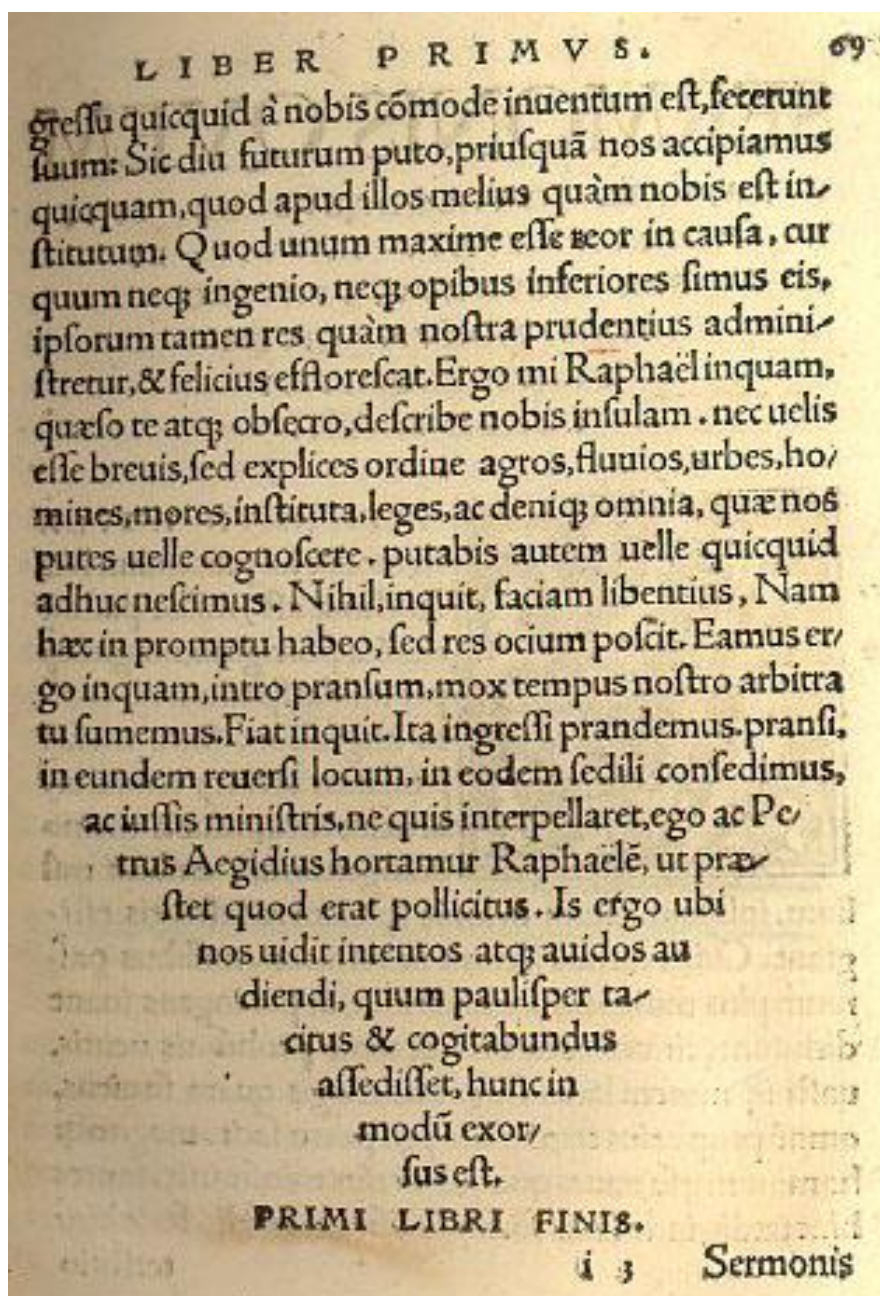 LIBER PRIMVS. 69
greſſu quicquid à nobis cōmode inuentum eſt, fecerunt
ſuum: Sic diu futurum puto, priuſquā nos accipiamus
quicquam, quod apud illos melius quàm nobis eſt in-
ſtitutum. Quod unum maxime eſſe reor in cauſa, cur
quum neq; ingenio, neq; opibus inferiores ſimus eis,
ipſorum tamen res quàm noſtra prudentius admini-
ſtretur, & felicius effloreſcat. Ergo mi Raphaël inquam,
quæſo te atq; obſecro, deſcribe nobis inſulam. nec uelis
eſſe breuis, ſed explices ordine agros, fluuios, urbes, ho/
mines, mores, inſtituta, leges, ac deniq; omnia, quæ nos
putes uelle cognoſcere. putabis autem uelle quicquid
adhuc neſcimus. Nihil, inquit, faciam libentius, Nam
hæc in promptu habeo, ſed res ocium poſcit. Eamus er/
go inquam, intro pranſum, mox tempus noſtro arbitra
tu ſumemus. Fiat inquit. Ita ingreſſi prandemus. pranſi,
in eundem reuerſi locum, in eodem ſedili conſedimus,
ac iuſſis miniſtris, ne quis interpellaret, ego ac Pe/
trus Aegidius hortamur Raphaëlē, ut præ-
ſtet quod erat pollicitus. Is ergo ubi
nos uidit intentos atq; auidos au
diendi, quum pauliſper ta-
citus & cogitabundus
aſſediſſet, hunc in
modū exor/
ſus eſt.
PRIMI LIBRI FINIS.
i 3 Sermonis